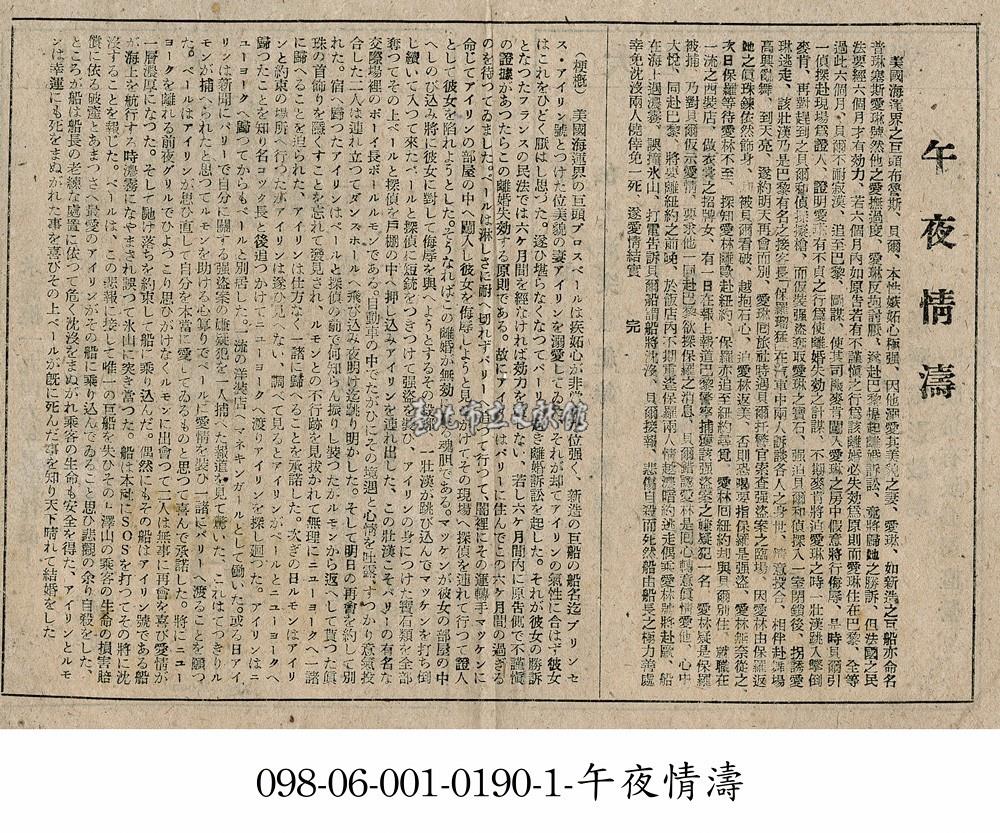 午夜情濤
美國海運界之巨頭布魯斯、貝爾、本性嫉妬心極强、因他溺愛其美貌之妻、愛琳、如新造之巨船亦命名
普琳塞斯愛琳號然他之愛撫過度、愛琳反抱討厭、遂赴巴黎提起離婚訴訟、竟將歸她之勝訴、但法國之民
法要經六個月才有効力、若六個月內如原告若有不謹愼之行爲該離婚必失効爲原則而愛琳住在巴黎、全等
過此六個月、貝爾不耐寂漠、追至巴黎、圖謀、使其司機麥肯闖入愛琳之房中假意將行侮辱、是時貝爾引
一偵探赴現場爲證人、證明愛琳有不貞之行爲使離婚失効之計謀、不期麥肯將迫愛琳之時一壯漢跳入擊倒
麥肯、再對趕到之貝爾和偵探發槍、而假裝强盗奪取愛琳之寶石、强迫貝爾和偵探入一室閉鎖後、拐誘愛
琳逃走、該壯漢乃是巴黎有名之接客長「保羅瑞猛」在汽車中兩人訴談各人之身世、情意投合、相伴赴舞場
高興亂舞、到天亮、遂約明天再會而別、愛琳囘旅社時遇貝爾托警官索查强盗案之臨場、因愛林由保羅返
她之眞珠鍊依然飾身、被貝爾看破、越抱石心、迫愛林返美、否則恐喝要指保羅是强盗、愛林無奈從之、
次日保羅等待愛林不至、探知愛林離歐赴紐約、保羅亦追至紐約尋覓、愛林囘紐約却與貝爾別住、就職在
一流之西裝店、做衣裳之招牌女、有一日在報上報道巴黎警察捕獲該强盗案之嫌疑犯一名、愛林疑是保羅
被捕、乃對貝爾假示愛情、要求他一同赴巴黎欲探保羅之消息、貝爾錯認愛林是囘心轉意眞情愛他、心中
大悅、同赴巴黎、將要離紐約之前晚、於飯店內不期重逢保羅兩人情越濃密相約逃走偶乘愛林號赴歐、船
在海上遇濃霧、誤撞氷山、打電告訴貝爾船謂船將沈沒、貝爾接報、悲傷自遺而死然船由船長之極力善處
幸免沈沒兩人僥倖免一死、遂愛情結實 完
(梗槪) 美國海運界の巨頭ブロスベールは疾妬心が非常に強く、新造の巨船の船名迄プリンセ
ス・アイリン號とつけた位美貌の妻アイリンを溺愛してゐたが、それが却てアイリンの氣性に合はず彼女
はこれをひどく厭はし思つた。遂ひ堪らなくなつてパリーへ行き離婚訴訟を起した。それが彼女の勝訴
となつたフランスの民法では六ケ月間を經なければ効力を しない、若し六ケ月間内に原告側で不謹愼
の證據があつたらこの離婚失効する原則である。故にアイリンはパリーに住んでこの六ケ月間の過ぎる
のを待つてゐました。ベールは淋しさに耐へ切れずパリーへ追つて行つて、闇裡にその運轉手マッケンに
命じてアイリンの部屋の中へ闖入し彼女を侮辱しようとし、そしてその現場へ探偵を連れて行つて證人
として彼女を陷れようとした。そうなればこの離婚が無効 魂胆である。マッケンが彼女の部屋の中
へしのび込み將に彼女に對して侮辱を與へようとするその に、一壯漢が跳び込んでマッケンを打ち倒
し續いて入つて來たベールと探偵に短銃をつきつけて强盗を裝ひ、アイリンの身につけた寶石類を全部
奪つてその上ベールと探偵を戸棚の中へ押し込みアイリンを連れ出した、この壯漢こそパリーの有名な
交際場裡のボーイ長ポールルモンである、自動車の中でたがひにその境遇と心情を吐露しすつかり意氣投
合した二人は連れ立つてダンスホールへ飛び込み夜明け迄跳り明かした。そして明日の再會を約して別
れた。宿へ歸つたアイリンはベールと探偵の前で何知らん振りし裝つたがルモンから返へして貰つた眞
珠の首飾りを隱くすことを忘れて發見され、ルモンとの不行跡を見拔かれて無理にニユーヨークへ一諸
に歸へることを迫られた、アイリンは仕方なく一諸に歸へることを承諾した。次ぎの日ルモンはアイリ
ンと約束の場所へ行つたがアイリンは遂ひ見 ない、調べて見るとアイリンがベールとニユーヨークへ
歸つたことを知り名コック長と後追つかけてニユーヨークへ渡りアイリンを探し廻つた。アイリンはニ
ユーヨークへ歸つてからもベールと別居した。一流の洋裝店でマネキンガールとして働いた。或る日アイ
リンは新聞にパリーで自分に關する强盗案の嫌疑犯を一人捕へた報道を見て驚いた、これはてつきりル
モンが捕へられたと思つてルモンを助ける心算りでベールに愛情を裝ひ一諸にパリーへ渡ることを願つ
た。ベールはアイリンが思ひ直して自分を本當に愛してゐるものと思つて喜んで承諾した。將にニユー
ヨークを離れる前夜料亭でひよつこり思ひがけなくルモンに出會つて二人は無事に再會を喜び愛情が
一層濃厚になつた。そして馳け落ちを約束して船に乘り込んだ。偶然にもその船はアイリン號である船
が海上を航行する時濃霧になやまされ誤つて氷山に突き當つた。船は本社にSOSを打つてその將に沈
沒することを報じた。ベールは、この悲報に接して唯一の巨船を失ひその上澤山の乘客の生命の損害賠
償に依る破產とあまつさへ最愛のアイリンがその船に乘り込んでゐること思ひ悲觀の余り自殺をした。
ところが船は船長の老練な處置に依つて危く沈沒をまぬがれ乘客の生命も安全を得た、アイリンとルモ
ンは幸運にも死をまぬがれた事を喜びその上ベールが既に死んだ事を知り天下晴れて結婚をした
臺北市立文獻館
098-06-001-0190-1-午夜情濤